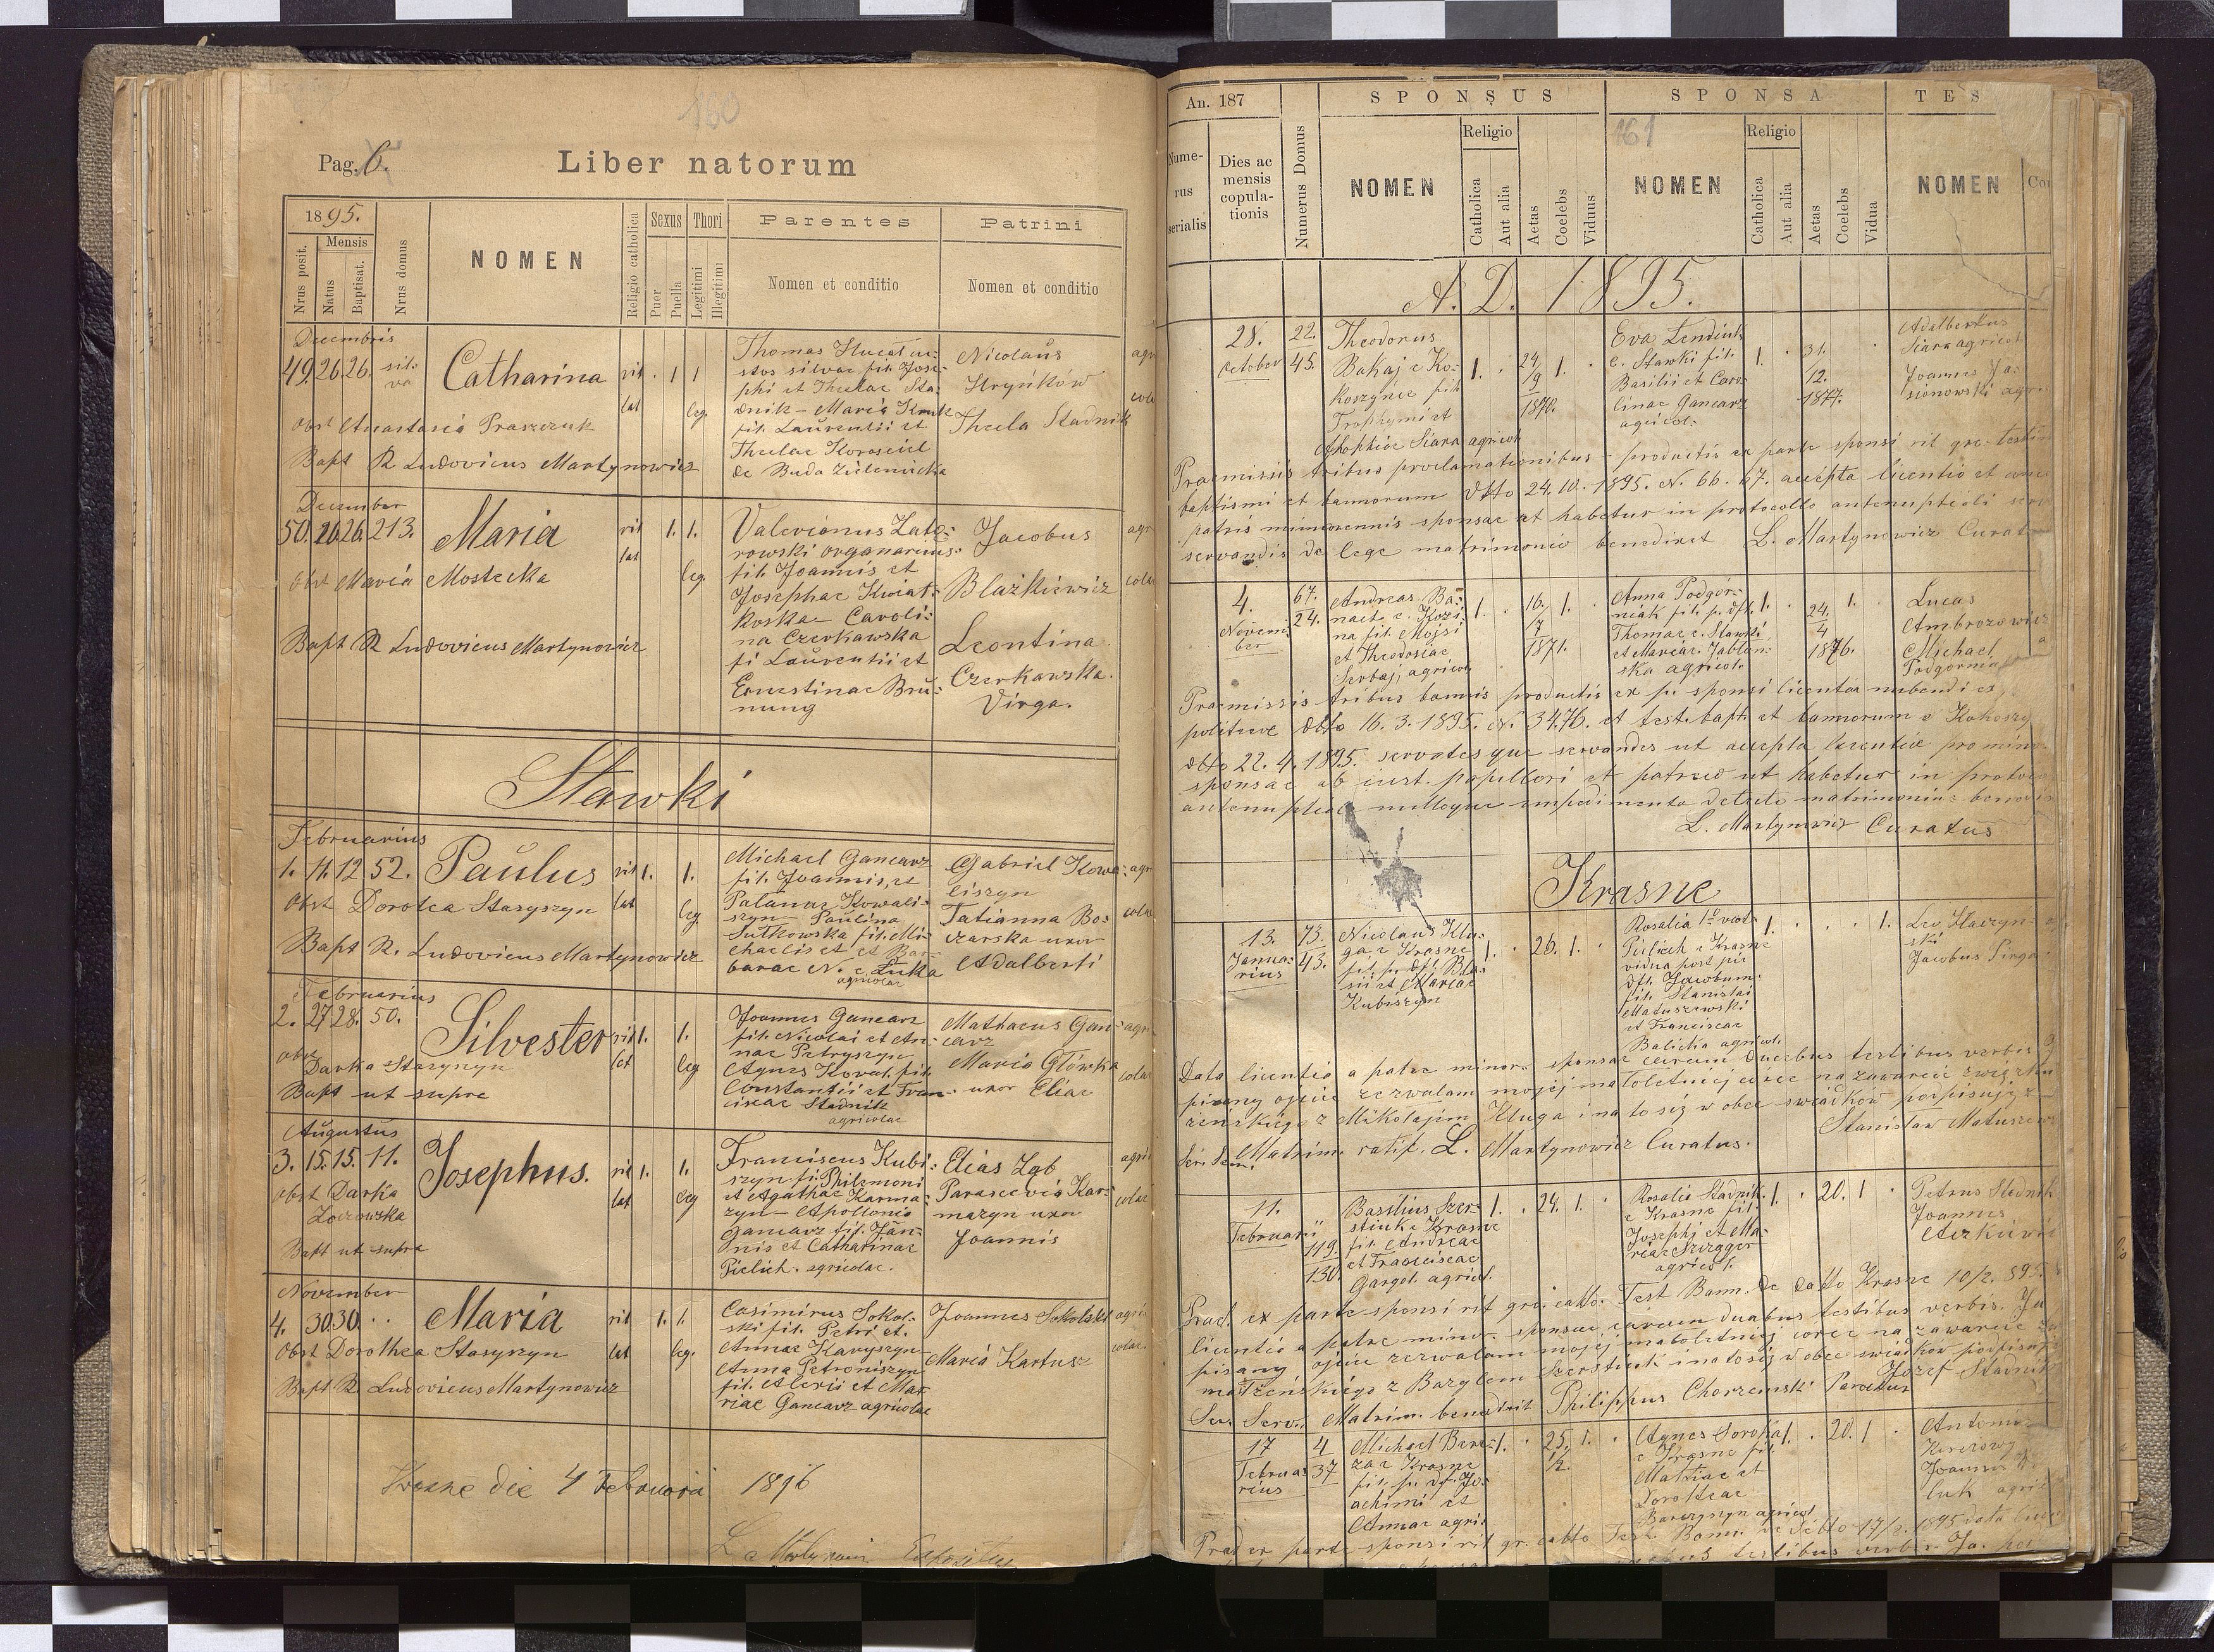 160
Pag. 6.
Liber natorum
1895.
Nrus posit.
Mensis
Natus
Baptisat.
Nrus domus
NOMEN
Religio catholica
Sexus
Puer
Puella
Thori
Legitimi
Illegitimi
Parentes
Nomen et conditio
Patrini
Nomen et conditio
Decembris
49. 26. 26. sil-
va
Catharina
rit
lat
1 1
leg.
Thomas
stos silvae fil. Jose-
phi et Theclae Sta-
dnik - Maria Kruk
fil. Laurentii et
Theclae
de Buda
Nicolaus
Hryńków
Thecla Stadnik
Obst Anastasia Praszczuk
Bapt R. Ludovicus Martynowicz
December
50. 26. 26. 213.
Maria
rit
lat
1. 1.
leg.
Valerianus Zato-
rowski organarius
fil. Joannis et
Josephae Kwiat-
koska - Caroli-
na Czerkawska
fi Laurentii et
Ernestinae Brü-
nung
Jacobus
Błażkiewicz
Leontina
Czerkawska.
Virgo.
Obst Maria Mostecka
Bapt R Ludovicus Martynowicz
Stawki
Februarius
1. 11. 12 52.
Paulus
rit 1. 1.
lat leg
Michael Gancarz
fil. Joannis, et
Kowali-
szyn - Paulina
Sutkowska fil. Mi-
chaelis et et Bar-
barae N. e Łuka
agricolae
Gabriel Kowa-
liszyn
Tatianna Bo-
czarska uxor
Adalberti
Obst Dorotea Stasyszyn
Bapt R. Ludovicus Martynowicz
Februarius
2. 27 28. 50.
Silvester
rit 1. 1.
lat leg
Joannes Gancarz
fil. Nicolai et An-
nae Petryszyn
Agnes Kowal. fil.
Constantii et Fran-
ciscae Stadnik
agricolae
Mathaeus Gan-
carz
Maria Główka
uxor Eliae
obst
Darka Stasyszyn
Bapt ut supra
Augustus
3. 15. 15. 11.
Josephus.
rit 1. 1.
lat leg
Franciscus Kubi-
szyn fi. Philemoni
et Agathae Karma-
zyn - Apollonia
Gancarz fil. Joan-
nis et Catharinae
Pielich. agricolae.
Elias Ząb
Parascevia Kar-
mazyn uxor
Joannis
obst Darka
Bapt ut supra
November
4. 30 30 . .
Maria
rit 1. 1.
lat leg.
Casimirus Sokol-
ski fil. Petri et
Annae Haryszyn
Anna Petroniszyn
fil. Alexii et Ma-
riae Gancarz agricolae
Joannes Sokolski
Maria Kartusz
Obst Dorothea Stasyszyn
Bapt R. Ludovicus Martynowicz
Krasne die 4 Februarii 1896
An. 187
161
SPONSUS
SPONSA
TES
Nume-
rus
serialis
Dies ac
mensis
copula-
tionis
Numerus Domus
NOMEN
Religio
Catholica
Aut alia
Aetas
Coelebs
Viduus
NOMEN
Religio
Catholica
Aut alia
Aetas
Coelebs
Vidua
NOMEN
A. D. 1895.
28.
October
22.
45.
Theodorus
Bakaj e Ko-
koszyńce fil.
Trophymi et
Siara agricol.
1. 24/9 1870. 1.
Eva
e. Stawki fil.
Basilii et Caro-
linae Gancarz
agricol.
1. 31. 12. 1877.
Adalbertus
Siara agricol
Joannes Ja-
sionowski agr.
Praemissis tribus proclamationibus - productis ex parte sponsi rit grc.
baptismi et bannorum ddto 24.10.1895. N. 66. 67. accepta licentia et
patris minorennis sponsae ut habetur in protocollo antenuptiali
servandis de lege matrimonio benedixit L. Martynowicz Curat
4.
Novem-
ber
67.
24.
Andreas Ba-
e. Kozi-
na fil. Mojsi
et Theodosiae
Serbaj, agricol.
1. 16/7 1871. 1.
Anna Podgór-
niak fil. p. dft.
Thomae e. Stawki
et Mariae Jabłon-
ska agricol.
1. 24/4 1876. 1.
Lucas
Ambrozowicz
Michael
Podgórniak
Praemissis tribus bannis productis ex pe sponsi licentia nubendi ex
politicae ddto 16.3.1895. N. 3476. et test. bapt. et bannorum e Kokoszy
ddto 22.4.1895. servatisque servandis ut accepta licentia pro mino
sponsae ab iust. pupillari et patruo ut habetur in protoco
nulloque impedimento detecto matrimonium benedix
L. Martynowicz Curatus
Krasne
13.
Janua-
rius
73.
43.
Nicolaus Klu-
ga e Krasne
fil. p. dft. Bla-
sii et Mariae
Kubiszyn
1. 26. 1.
Rosalia
Pielich e Krasne
vidua post pie
dft. Jacobum.
fil. Stanislai
Matuszewski
et Franciscae
Balicka agricol.
1. 1.
Jacobus
Data licentia a patre minor. sponsae coram duobus testibus verbis
pisany ojciec zezwalam mojej małoletniej córce na zawarcie związku
żeńskiego z Mikołajem Kluga i na to się w obec świadków podpisuję
Stanisław Matuszew
Matrim. ratif. L. Martynowicz Curatus.
11.
Februarii
119.
130.
Basilius Szer-
stiuk e Krasne
fil. Andreae
et Franciscae
agricol.
1. 24. 1.
Rosalia Stadnik
e Krasne fil.
Josephi et Ma-
riae
agricol.
1. 20. 1
Petrus Stadnik
Joannes
Prod. ex parte sponsi rit gr. catto. Test Bann. de datto Krasne 10/2. 895.
licentia a patre minor. sponsae coram duabus testibus verbis. Ja
pisany ojciec zezwalam mojej małoletniej córce na zawarcie
małżeńskiego z Bazylem Szerstiuk i na to się w obec świadków podpisuję
Józef Stadnik
Serv. Matrim. benedixit Philippus Chorzemski Parochus
17
Februa-
rius
4
37
Michael Bere-
za e Krasne
fil. p. df. Jo-
achimi et
Annae agri.
1. 25. 1/2. 1.
Agnes Soroka
e Krasne fil.
et
Dorotheae
agricol
1. 20. 1
Antoni
Joannes
Prod ex parte sponsi rit gr. catto Test. Bann. de datto 17/2. 1895 data